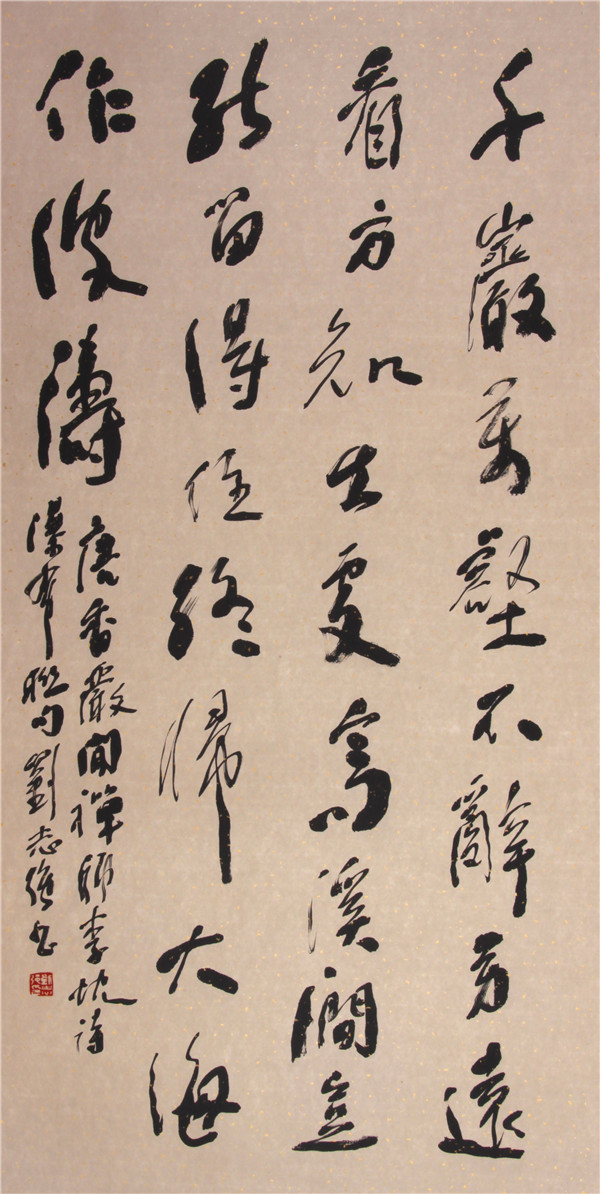 千巖萬壑不辭勞遠
看方知出處高溪澗豈
能留得住終歸大海
作波濤
唐香嚴閒禪師李忱詩
瀑布聯句劉志強書